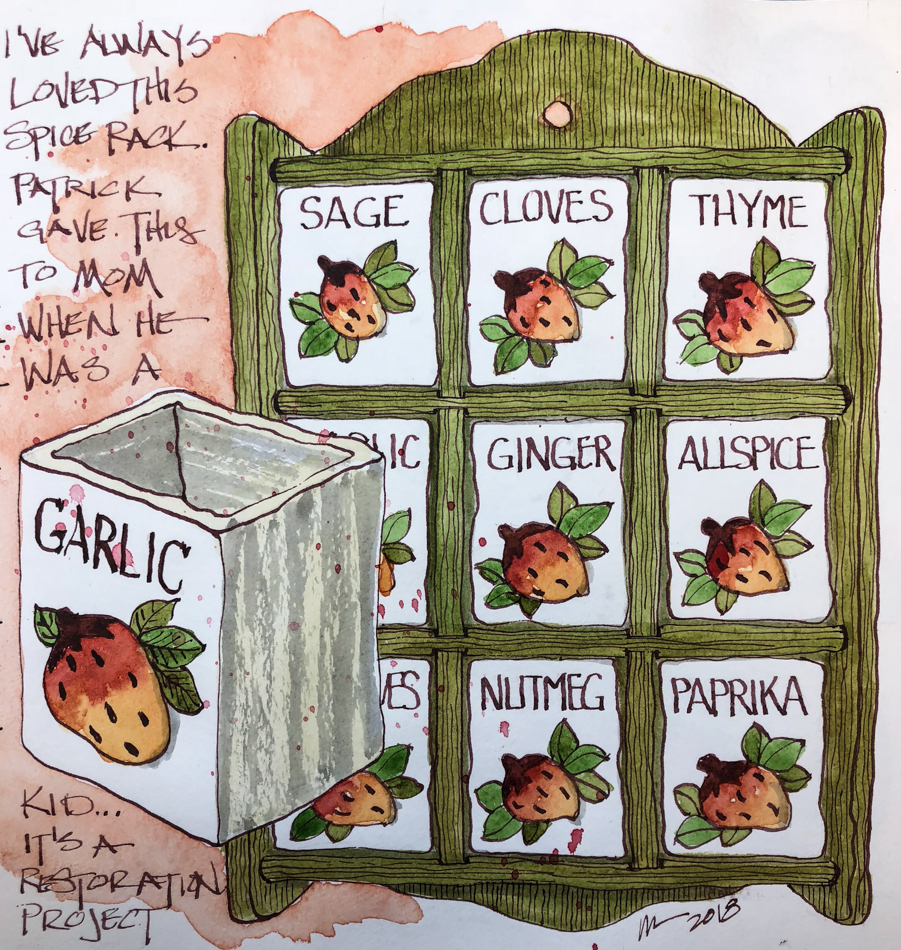 I'VE ALWAYS
LOVED THIS
SPICE RACK.
PATRICK
GAVE THIS
TO MOM
WHEN HE
WAS A
KID...
IT'S A
RESTORATION
PROJECT
SAGE
CLOVES
THYME
LIC
GINGER
ALLSPICE
GARLIC
VES
NUTMEG
PAPRIKA
2018